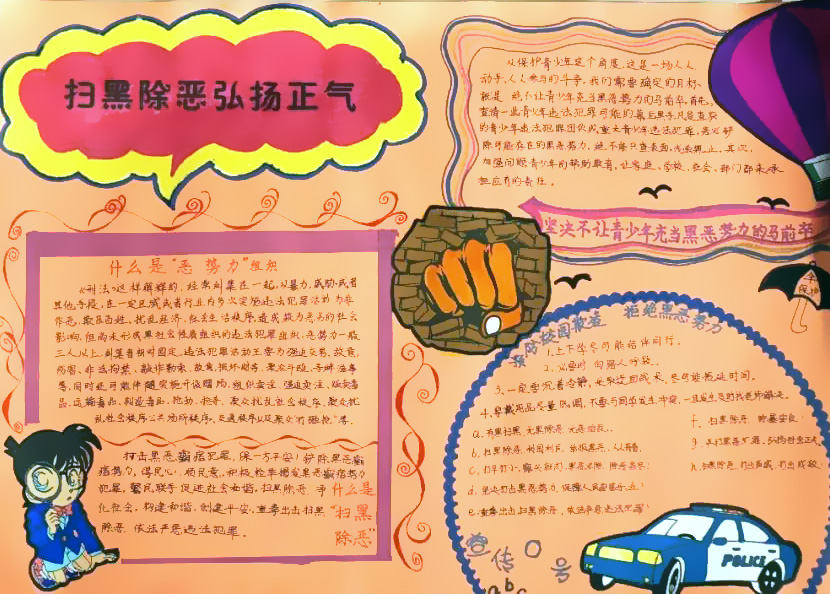 扫黑除恶弘扬正气
从保护青少年这个角度,这是一场人人
动手,人人参与的斗争。我们需要确定的目标,
就是 绝不让青少年充当黑恶势力的马前卒。首先,
查清一些青少年违法犯罪可能的幕后黑手,凡是查获
的青少年违法犯罪团伙或重大青少年违法犯罪,
除可能存在的黑恶势力,绝不能只查表面,
加强问题青少年的帮助教育,让家庭、学校、社会、部门都来承
担应有的责任。
坚决不让青少年充当黑恶势力的马前卒
什么是“恶势力”组织
《刑法》这样解释的,经常纠集在一起,以暴力,威胁或者
其他手段,在一定区域或者行业内多次实施违法犯罪活动,为非
作恶,欺压百姓,扰乱经济,社会生活秩序,造成较为恶劣的社会
影响,但尚未形成黑社会性质组织的违法犯罪组织,恶势力一般
三人以上,纠集者相对固定,违法犯罪活动主要为强迫交易,故意
伤害,非法拘禁,敲诈勒索,故意损坏财物,聚众斗殴,寻衅滋事
等,同时还可能伴随实施开设赌场,组织卖淫,强迫卖淫,贩卖毒
品,运输毒品,制造毒品,抢劫,抢夺,聚众扰乱社会秩序,聚众扰
乱社会秩序公共场所秩序,交通秩序以及聚众“打砸抢”等。
打击黑恶霸痞犯罪,保一方平安!铲除黑恶霸
痞势力,得民心,顺民意,积极检举揭发黑恶霸痞势力
犯罪,警民联手促进社会和谐。扫黑除恶,净
化社会,构建和谐,创建平安,重拳出击扫黑
除恶,依法严惩违法犯罪。
什么是
“扫黑
除恶”
预防校园被盗 拒绝黑恶势力
1.上下学尽可能结伴同行。
2.必要时 向路人呼救。
3.一定要沉着冷静,采取迂回战术,尽可能拖延时间。
4.穿戴用品尽量低调,不要与同学发生冲突,一旦发生及时找老师解决。
a.有黑扫黑,无黑除恶,无恶治乱。
b.扫黑除恶,利国利民,举报黑恶,人人有责。
c.打早打小,露头就打,黑恶必除,除恶务尽!
d.坚决打击黑恶势力,保障人民安居乐业!
e.重拳出击扫黑除恶,依法严惩违法犯罪!
f.扫黑除恶,除暴安良
宣传口号
abc
POLICE